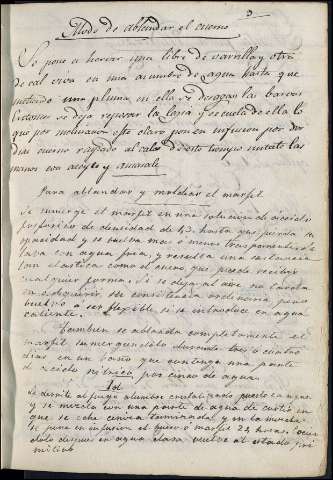 3
Modo de ablandar el cuerno
Se pone a hervir una libra de varrilla y otra
de cal viva en una azumbre de agua hasta que
metiendo una pluma en ella se desagan las barvas
Entonces se deja reposar la lejia y se cuela de ella lo
que por inclinacion este claro pon en infusion por dos
dias cuerno raspado al cabo de este tiempo untate las
manos con aceyte y amasale
Para ablandar y moldear el marfil
Se sumerge el marfil en una solucion de acido
fosforico de densidad de 13. hasta que pierda su
opacidad y se vuelva mas ó menos trasparente se le
lava con agua fria, y resulta una sustancia
tan elastica como el cuero que puede recibir
cualquier forma. Si se deja al aire no tarda
en adquirir su consistencia ordinaria, pero
vuelve a ser flexible si se introduce en agua
caliente.
Tambien se ablanda completamente el
marfil sumergiendolo durante tres o cuatro
dias en un baño que contenga una parte
de acido nitrico por cinco de agua.
Id
Se derrite al fuego alumbre cristalizado puesto en agua
y se mezcla con una parte de agua de curtir en
que se eche ceniza y en la mezcla
se pone en infusion el hueso ó marfil 24 horas
despues en agua clara vuelve al estado pri
mitivo